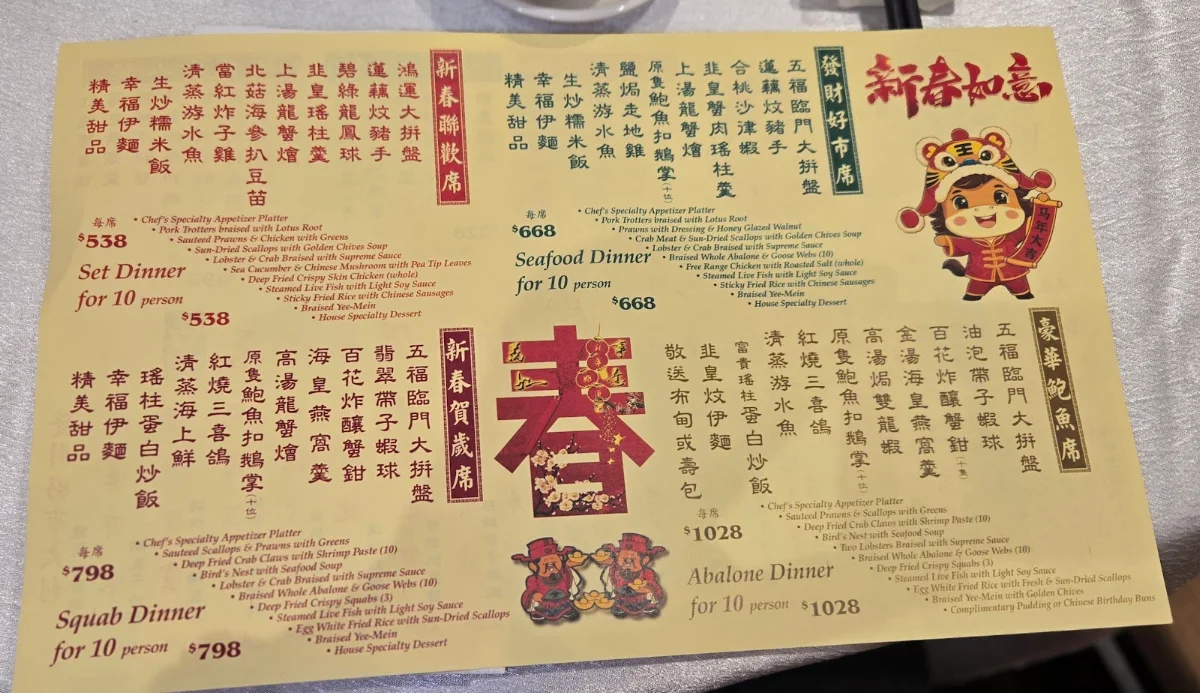 新春如意
馬年大吉
王
新春聯歡席
鴻運大拼盤
蓮藕炆豬手
碧綠龍鳳球
韭皇瑤柱羹
上湯龍蟹燴
北菇海參扒豆苗
當紅炸子雞
清蒸游水魚
生炒糯米飯
幸福伊麵
精美甜品
每席
$538
Set Dinner
for 10 person
$538
• Chef's Specialty Appetizer Platter
• Pork Trotters braised with Lotus Root
• Sauteed Prawns & Chicken with Greens
• Sun-Dried Scallops with Golden Chives Soup
• Lobster & Crab Braised with Supreme Sauce
• Sea Cucumber & Chinese Mushroom with Pea Tip Leaves
• Deep Fried Crispy Skin Chicken (whole)
• Steamed Live Fish with Light Soy Sauce
• Sticky Fried Rice with Chinese Sausages
• Braised Yee-Mein
• House Specialty Dessert
發財好市席
五福臨門大拼盤
蓮藕炆豬手
合桃沙律蝦
韭皇蟹肉瑤柱羹
上湯龍蟹燴
原隻鮑魚扣鵝掌(十位)
鹽焗走地雞
清蒸游水魚
生炒糯米飯
幸福伊麵
精美甜品
每席
$668
Seafood Dinner
for 10 person
$668
• Chef's Specialty Appetizer Platter
• Pork Trotters braised with Lotus Root
• Prawns with Dressing & Honey Glazed Walnut
• Crab Meat & Sun-Dried Scallops with Golden Chives Soup
• Lobster & Crab Braised with Supreme Sauce
• Braised Whole Abalone & Goose Webs (10)
• Free Range Chicken with Roasted Salt (whole)
• Steamed Live Fish with Light Soy Sauce
• Sticky Fried Rice with Chinese Sausages
• Braised Yee-Mein
• House Specialty Dessert
新春賀歲席
五福臨門大拼盤
翡翠帶子蝦球
百花炸釀蟹鉗
海皇燕窩羹
高湯龍蟹燴
原隻鮑魚扣鵝掌(十位)
紅燒三喜鴿
清蒸海上鮮
瑤柱蛋白炒飯
幸福伊麵
精美甜品
每席
$798
Squab Dinner
for 10 person
$798
• Chef's Specialty Appetizer Platter
• Sauteed Scallops & Prawns with Greens
• Deep Fried Crab Claws with Shrimp Paste (10)
• Bird's Nest with Seafood Soup
• Lobster & Crab Braised with Supreme Sauce
• Braised Whole Abalone & Goose Webs (10)
• Deep Fried Crispy Squabs (3)
• Steamed Live Fish with Light Soy Sauce
• Egg White Fried Rice with Sun-Dried Scallops
• Braised Yee-Mein
• House Specialty Dessert
春
豪華鮑魚席
五福臨門大拼盤
油泡帶子蝦球
百花炸釀蟹鉗(十隻)
金湯海皇燕窩羹
高湯焗雙龍蝦
原隻鮑魚扣鵝掌(十位)
紅燒三喜鴿
清蒸游水魚
富貴瑤柱蛋白炒飯
韭皇炆伊麵
敬送布甸或壽包
每席
$1028
Abalone Dinner
for 10 person
$1028
• Chef's Specialty Appetizer Platter
• Sauteed Prawns & Scallops with Greens
• Deep Fried Crab Claws with Shrimp Paste (10)
• Bird's Nest with Seafood Soup
• Two Lobsters Braised with Supreme Sauce
• Braised Whole Abalone & Goose Webs (10)
• Deep Fried Crispy Squabs (3)
• Steamed Live Fish with Light Soy Sauce
• Egg White Fried Rice with Fresh & Sun-Dried Scallops
• Braised Yee-Mein with Golden Chives
• Complimentary Pudding or Chinese Birthday Buns